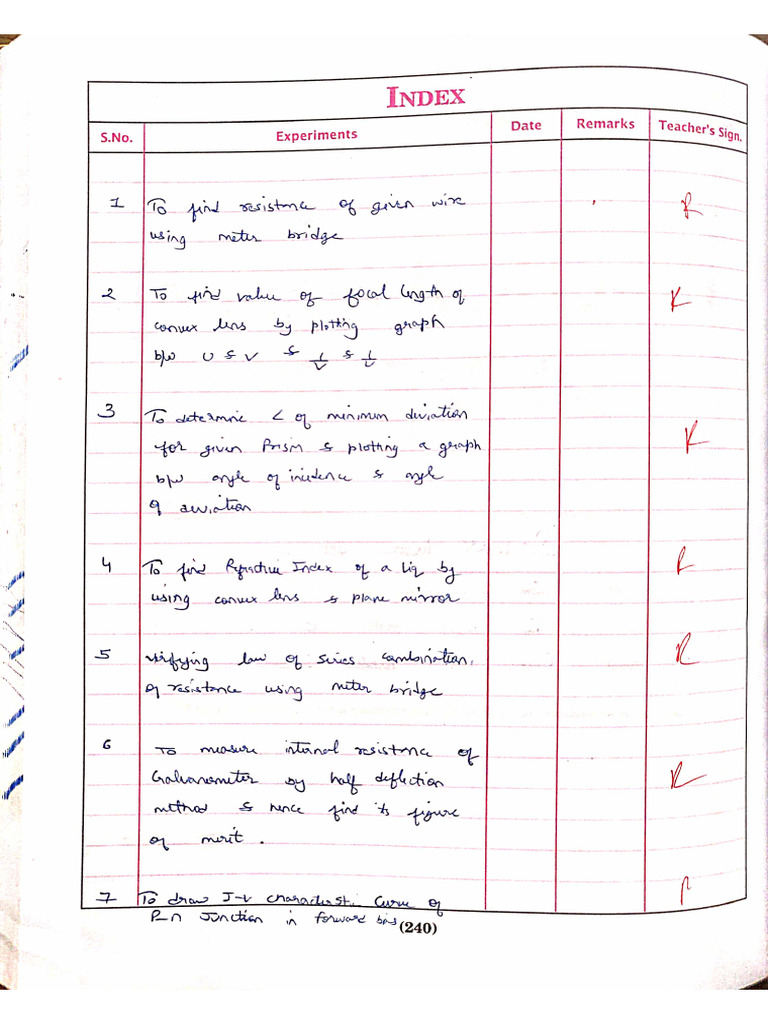 INDEX
S.No. Experiments Date Remarks Teacher's Sign.
1 To find resistance of given wire
using meter bridge
2 To find value of focal length of
convex lens by plotting graph
b/w U & V & 1/V & 1/U
3 To determine ∠ of minimum deviation
for given Prism & plotting a graph
b/w angle of incidence & angle
of deviation
4 To find Refractive Index of a liq by
using convex lens & plane mirror
5 Verifying law of series combination
of resistance using meter bridge
6 To measure internal resistance of
Galvanometer by half deflection
method & hence find its figure
of merit.
7 To draw I-V characteristic Curve of
P-n Junction in forward bias
(240)